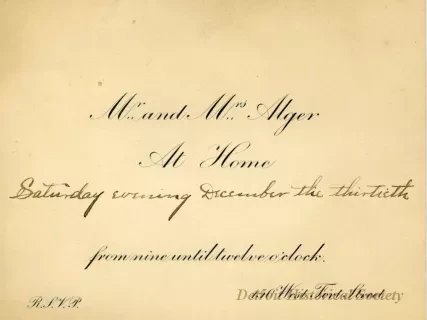 Mr. and Mrs. Alger
At Home
Saturday evening December the thirtieth
from nine until twelve o'clock.
150 West Fort Street
Detroit Historical Society
R.S.V.P.